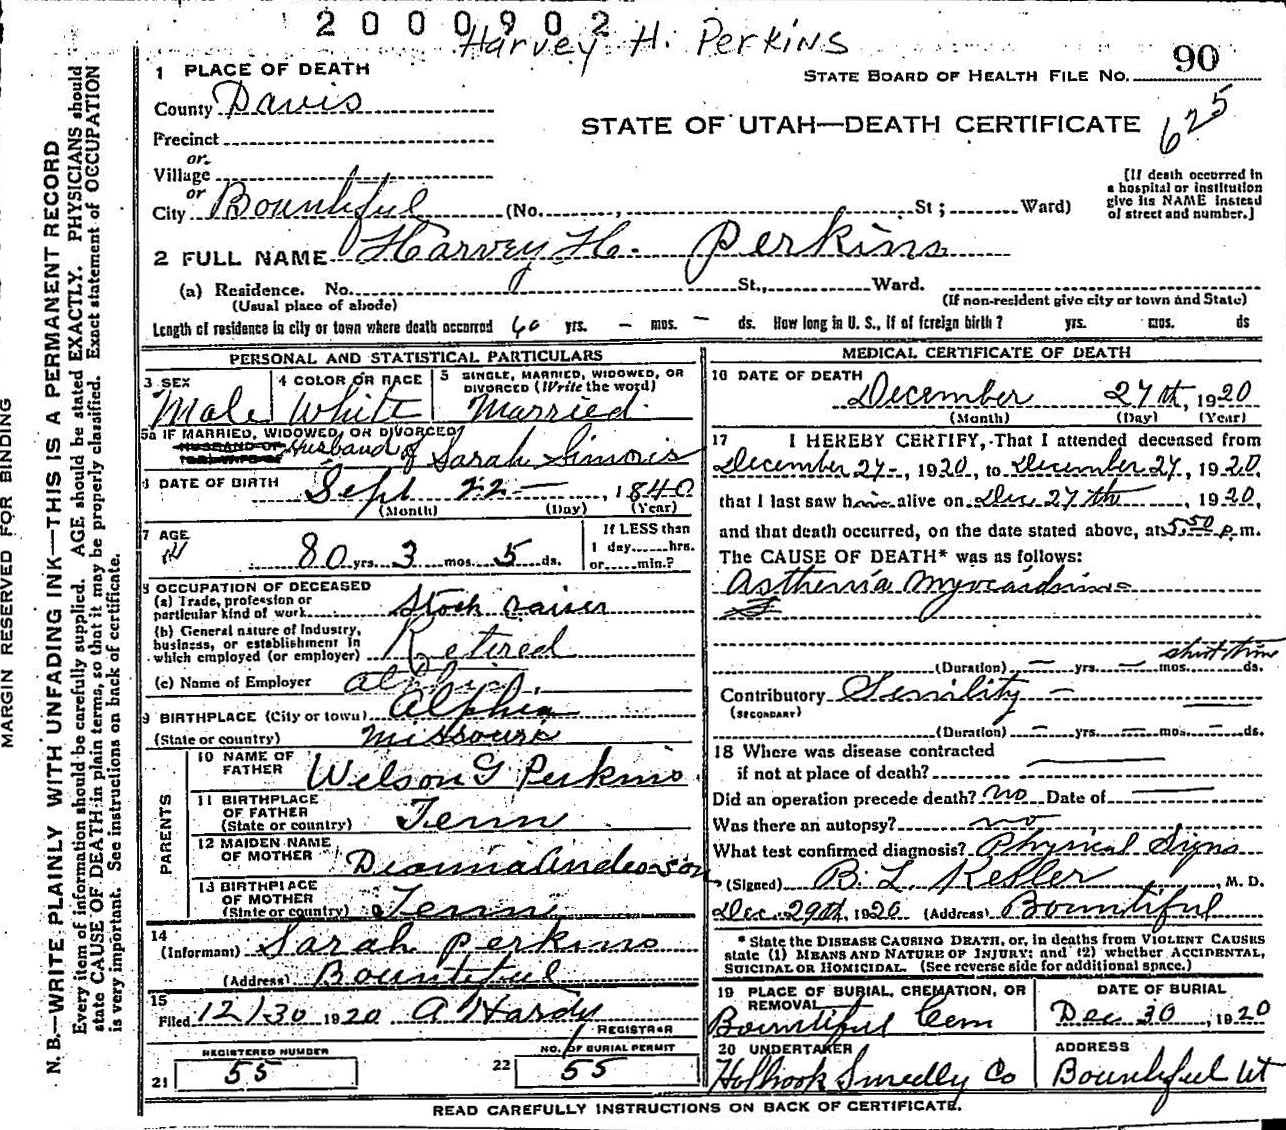 2000902
Harvey H. Perkins
90
STATE BOARD OF HEALTH FILE No.
625
STATE OF UTAH—DEATH CERTIFICATE
1 PLACE OF DEATH
County Davis
Precinct
or
Village
or
City Bountiful (No. , St ; Ward)
[If death occurred in
a hospital or institution
give its NAME instead
of street and number.]
2 FULL NAME Harvey H. Perkins
(a) Residence. No. St., Ward.
(Usual place of abode) (If non-resident give city or town and State)
Length of residence in city or town where death occurred 60 yrs. – mos. – ds. How long in U. S., if of foreign birth? yrs. mos. ds
PERSONAL AND STATISTICAL PARTICULARS
3 SEX
Male
4 COLOR OR RACE
White
5 SINGLE, MARRIED, WIDOWED, OR
DIVORCED (Write the word)
Married
5a IF MARRIED, WIDOWED, OR DIVORCED
Husband of Sarah Simons
6 DATE OF BIRTH Sept 22 – , 1840
(Month) (Day) (Year)
7 AGE
80 yrs. 3 mos. 5 ds.
If LESS than
1 day......hrs.
or......min.?
8 OCCUPATION OF DECEASED
(a) Trade, profession or
particular kind of work Stock raiser
(b) General nature of Industry,
business, or establishment in
which employed (or employer) Retired
(c) Name of Employer
9 BIRTHPLACE (City or town) Alphia
(State or country) Missouri
PARENTS
10 NAME OF
FATHER Wilson G Perkins
11 BIRTHPLACE
OF FATHER
(State or country) Tenn
12 MAIDEN NAME
OF MOTHER Dianna Anderson
13 BIRTHPLACE
OF MOTHER
(State or country) Tenn
14
(Informant) Sarah Perkins
(Address) Bountiful
15
Filed 12/30 1920 A Hardy
REGISTRAR
REGISTERED NUMBER
21 55
NO. OF BURIAL PERMIT
22 55
MEDICAL CERTIFICATE OF DEATH
16 DATE OF DEATH
December 27th, 1920
(Month) (Day) (Year)
17 I HEREBY CERTIFY, That I attended deceased from
December 27-, 1920, to December 27, 1920,
that I last saw him alive on Dec 27th, 1920,
and that death occurred, on the date stated above, at 5.50 p.m.
The CAUSE OF DEATH* was as follows:
Asthenia
short time
(Duration) – yrs. – mos. ds.
Contributory Senility –
(SECONDARY)
(Duration) – yrs. – mos. – ds.
18 Where was disease contracted
if not at place of death?
Did an operation precede death? no Date of
Was there an autopsy? no
What test confirmed diagnosis? Physical Signs
(Signed) B. L. Kesler, M. D.
Dec. 29th, 1920 (Address) Bountiful
* State the DISEASE CAUSING DEATH, or, in deaths from VIOLENT CAUSES
state (1) MEANS AND NATURE OF INJURY; and (2) whether ACCIDENTAL,
SUICIDAL OR HOMICIDAL. (See reverse side for additional space.)
19 PLACE OF BURIAL, CREMATION, OR
REMOVAL
Bountiful Cem
DATE OF BURIAL
Dec 30, 1920
20 UNDERTAKER
Holbrook Smedly Co
ADDRESS
Bountiful Ut
READ CAREFULLY INSTRUCTIONS ON BACK OF CERTIFICATE.
MARGIN RESERVED FOR BINDING
N. B.—WRITE PLAINLY WITH UNFADING INK—THIS IS A PERMANENT RECORD
Every item of information should be carefully supplied. AGE should be stated EXACTLY. PHYSICIANS should
state CAUSE OF DEATH in plain terms, so that it may be properly classified. Exact statement of OCCUPATION
is very important. See instructions on back of certificate.